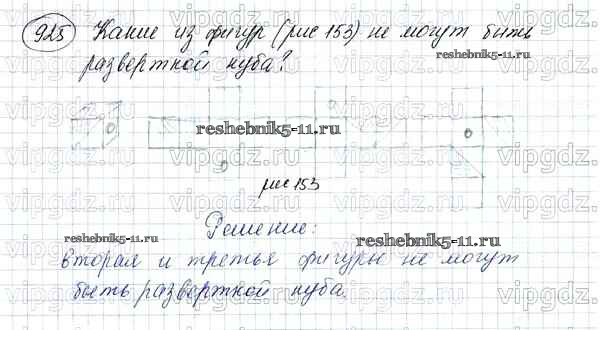 925 Какие из фигур (рис 153) не могут быть
разверткой куба?
reshebnik5-11.ru
reshebnik5-11.ru
рис 153
Решение:
reshebnik5-11.ru
reshebnik5-11.ru
вторая и третья фигуры не могут
быть разверткой куба.
vipgdz.